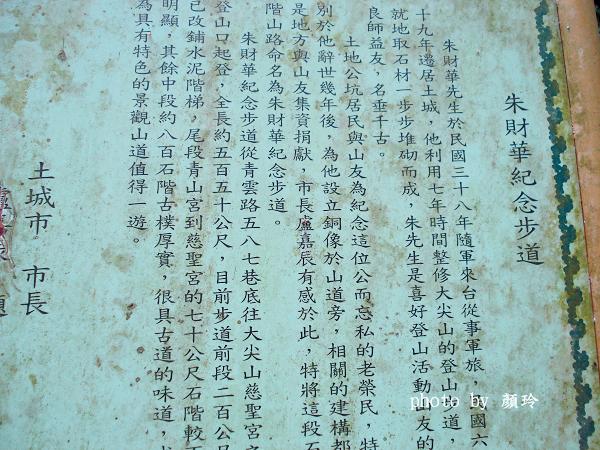 朱財華紀念步道
朱財華先生於民國三十八年隨軍來台從事軍旅，民國六
十九年遷居土城，他利用七年時間整修大尖山的登山步道，
就地取石材一步步堆砌而成，朱先生是喜好登山活動山友的
良師益友，名垂千古。
土地公坑居民與山友為紀念這位公而忘私的老榮民，特
別於他辭世幾年後，為他設立銅像於山道旁，相關的建構都
是地方與山友集資捐獻，市長盧嘉辰有感於此，特將這段石
階山路命名為朱財華紀念步道。
朱財華紀念步道從青雲路五八七巷底往大尖山慈聖宮
登山口起登，全長約五百五十公尺，目前步道前段二百公尺
已改鋪水泥階梯，尾段青山宮到慈聖宮的七十公尺石階較
明顯，其餘中段約八百石階古樸厚實，很具古道的味道，
為具有特色的景觀山道值得一遊。
土城市 市長
photo by 顏玲